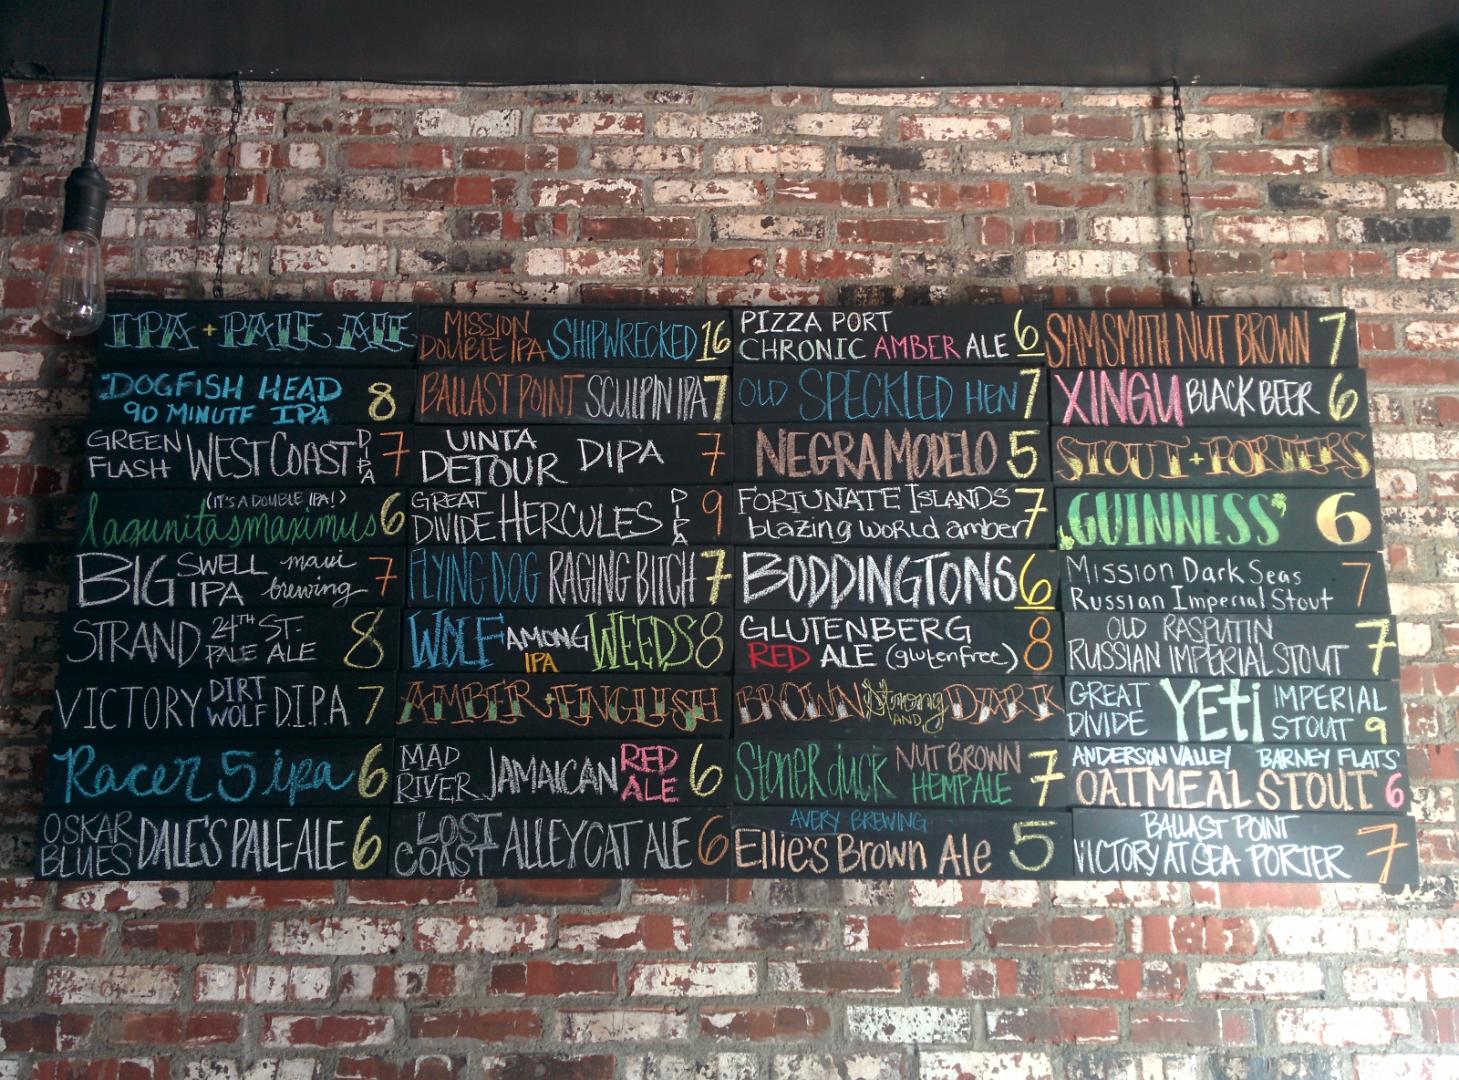 IPA + PALE ALE
DOGFISH HEAD
90 MINUTE IPA 8
GREEN FLASH WEST COAST DIPA 7
(IT'S A DOUBLE IPA!)
lagunitas maximus 6
BIG SWELL IPA maui brewing 7
STRAND 24TH ST. PALE ALE 8
VICTORY DIRT WOLF D.I.P.A 7
Racer 5 ipa 6
OSKAR BLUES DALE'S PALE ALE 6
MISSION DOUBLE IPA SHIPWRECKED 16
BALLAST POINT SCULPIN IPA 7
UINTA DETOUR DIPA 7
GREAT DIVIDE HERCULES DIPA 9
FLYING DOG RAGING BITCH 7
WOLF AMONG WEEDS IPA 8
AMBER + ENGLISH
MAD RIVER JAMAICAN RED ALE 6
LOST COAST ALLEYCAT ALE 6
PIZZA PORT
CHRONIC AMBER ALE 6
OLD SPECKLED HEN 7
NEGRA MODELO 5
FORTUNATE ISLANDS
blazing world amber 7
BODDINGTONS 6
GLUTENBERG
RED ALE (gluten free) 8
BROWN Strong AND DARK
Stoner duck NUT BROWN HEMP ALE 7
AVERY BREWING
Ellie's Brown Ale 5
SAM SMITH NUT BROWN 7
XINGU BLACK BEER 6
STOUT + PORTERS
GUINNESS 6
Mission Dark Seas
Russian Imperial Stout 7
OLD RASPUTIN
RUSSIAN IMPERIAL STOUT 7
GREAT DIVIDE YETI IMPERIAL STOUT 9
ANDERSON VALLEY BARNEY FLATS
OATMEAL STOUT 6
BALLAST POINT
VICTORY AT SEA PORTER 7